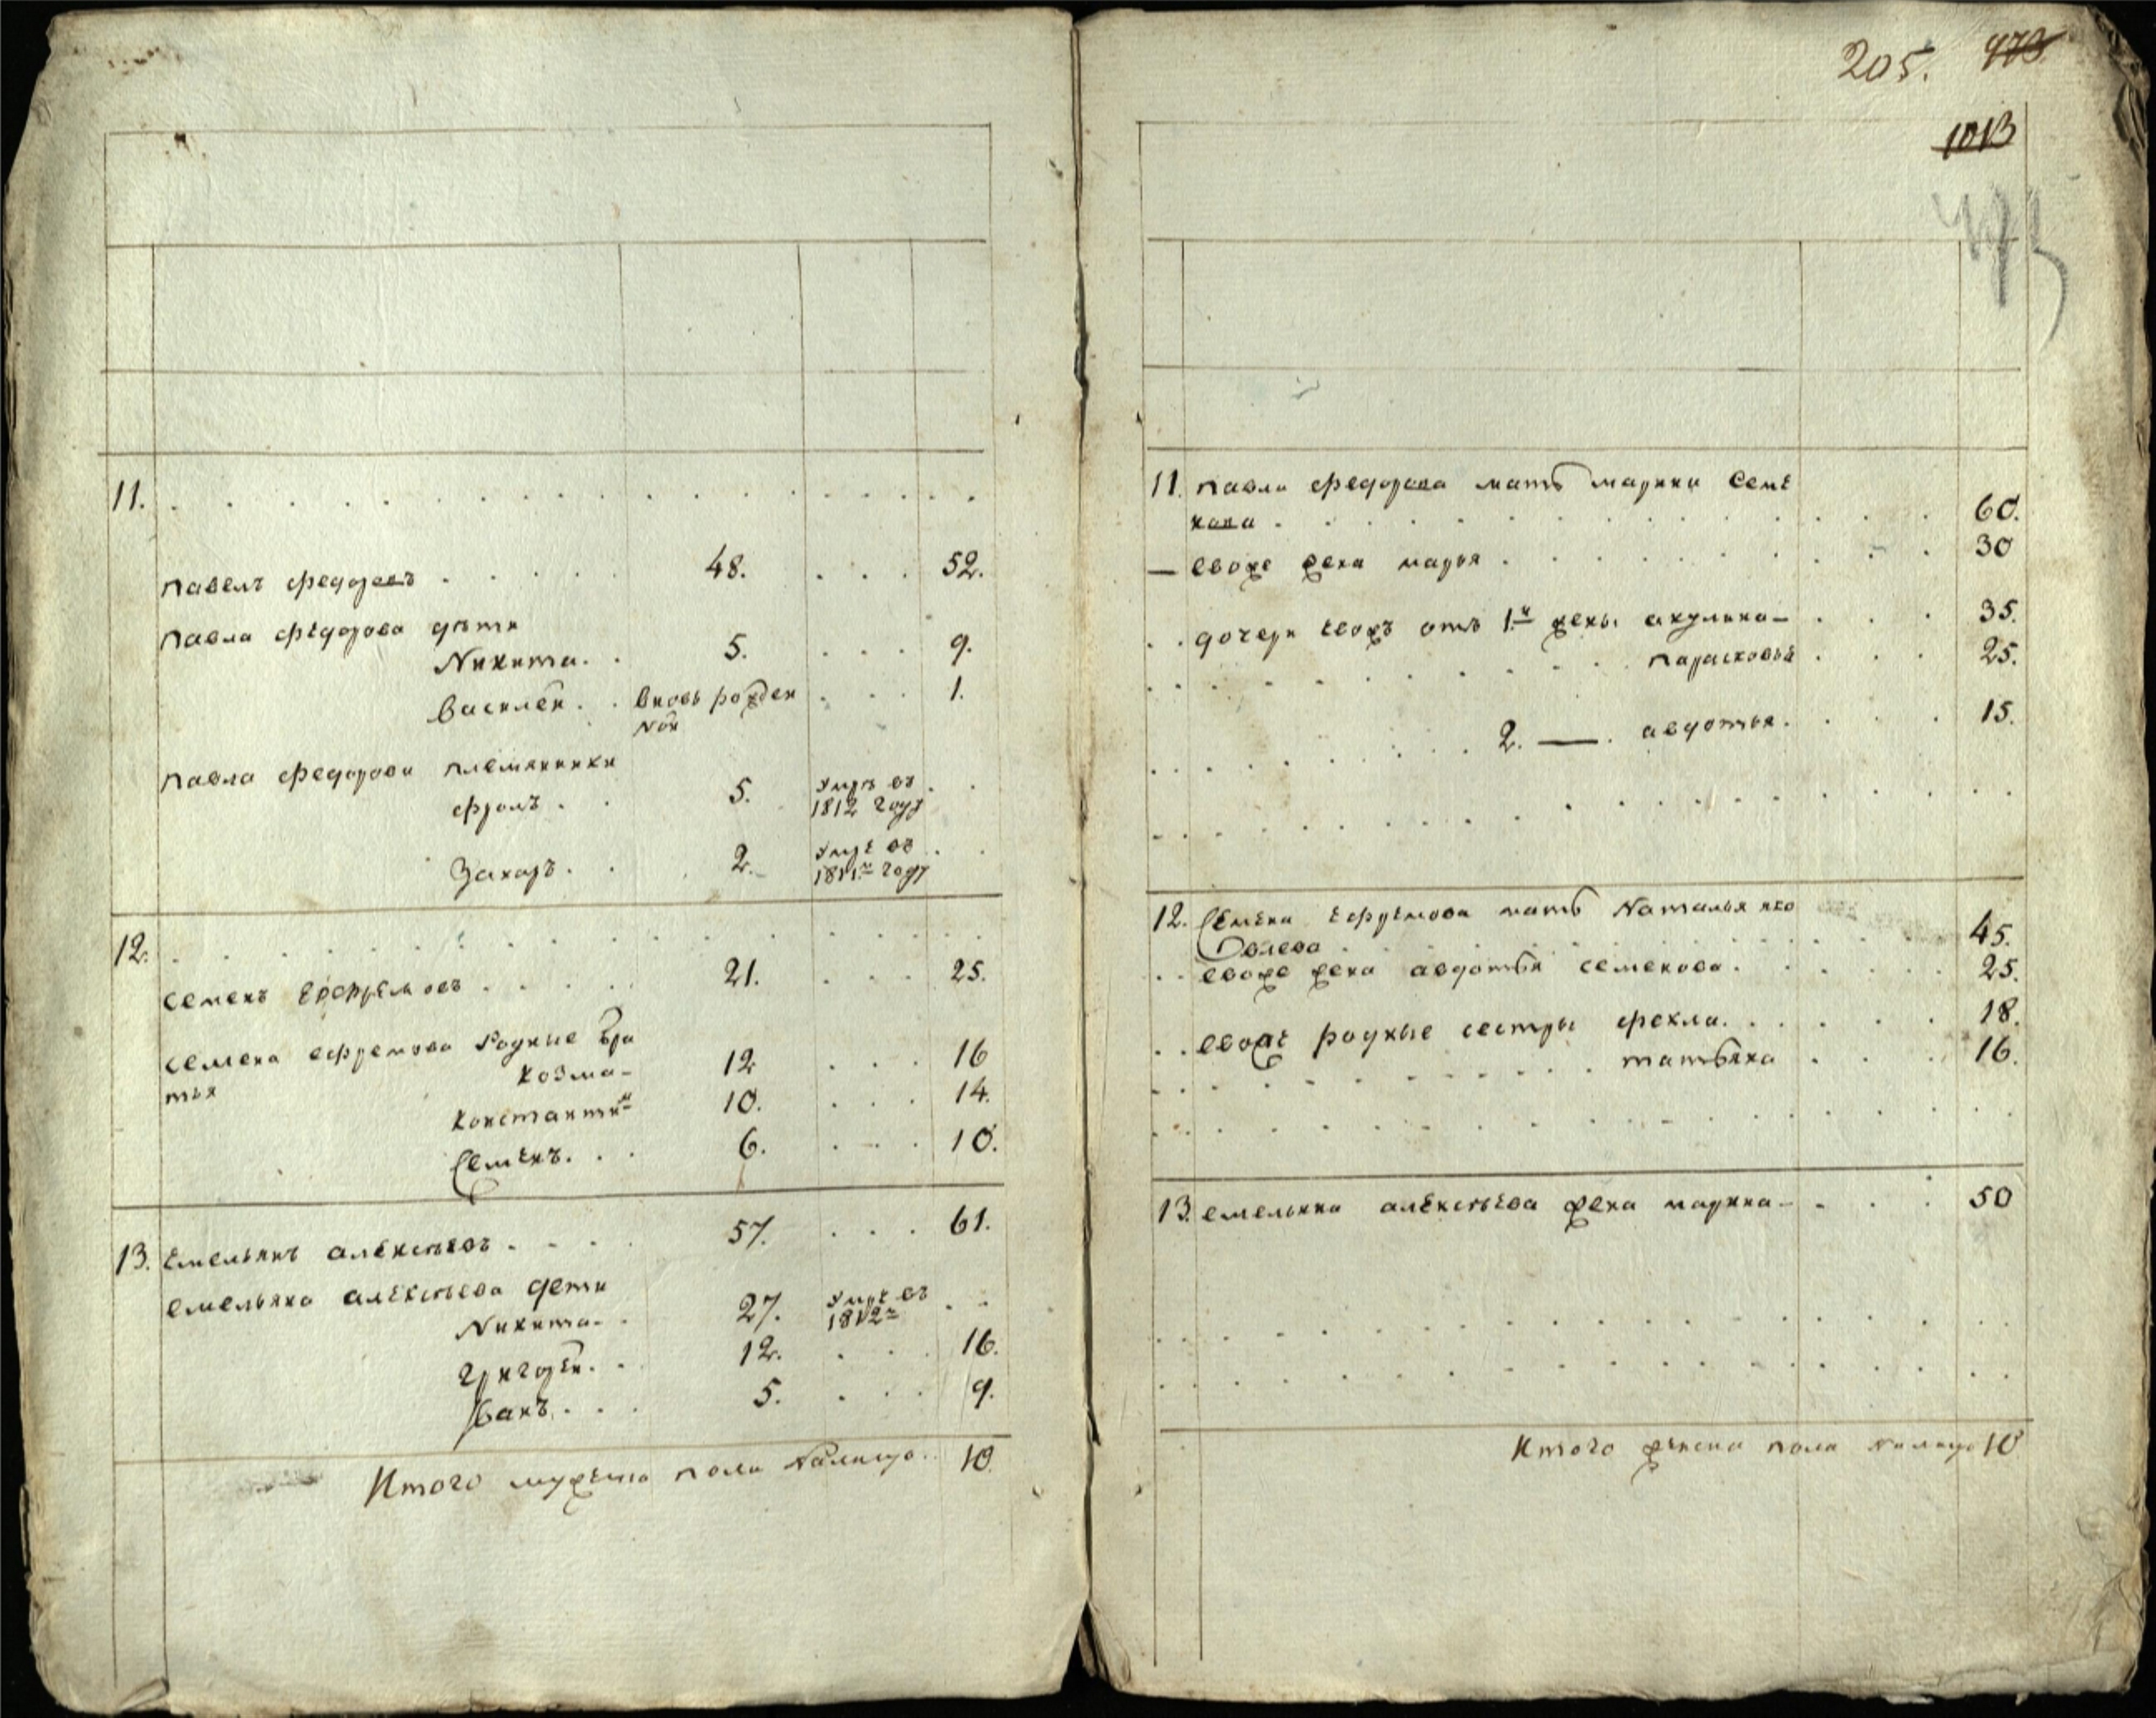 11.
павелъ федоровъ 48. 52.
павла федорова дѣти
Никита. 5. 9.
василей. вновь рожден 1.
ной
павла федорова племянники
фролъ. 5. умръ въ
1812 году
Захаръ. 2. умре въ
1811м году
12.
семенъ ефремовъ 21. 25.
семена ефремова родные бра
тья
козма 12 16
константин 10. 14.
Семенъ. 6. 10.
13. емельянъ алексѣевъ 57. 61.
емельяна алексѣева дети
Никита 27. умре въ
1812м
григорей. 12. 16.
Иванъ. 5. 9.
Итого мужеска пола налицо 10.
205. 473
1013
11. павла федорова мать марина семе
нова 60.
евоже жена марья 30
дочери евожъ отъ 1й жены акулина 35.
парасковья 25.
2. — авдотья. 15.
12. Семена ефремова мать Наталья яко
влева 45.
евоже жена авдотья семенова. 25.
евоже родные сестры фекла. 18.
татьяна 16.
13. емельяна алексѣева жена марина 50
Итого женска пола налицо 10